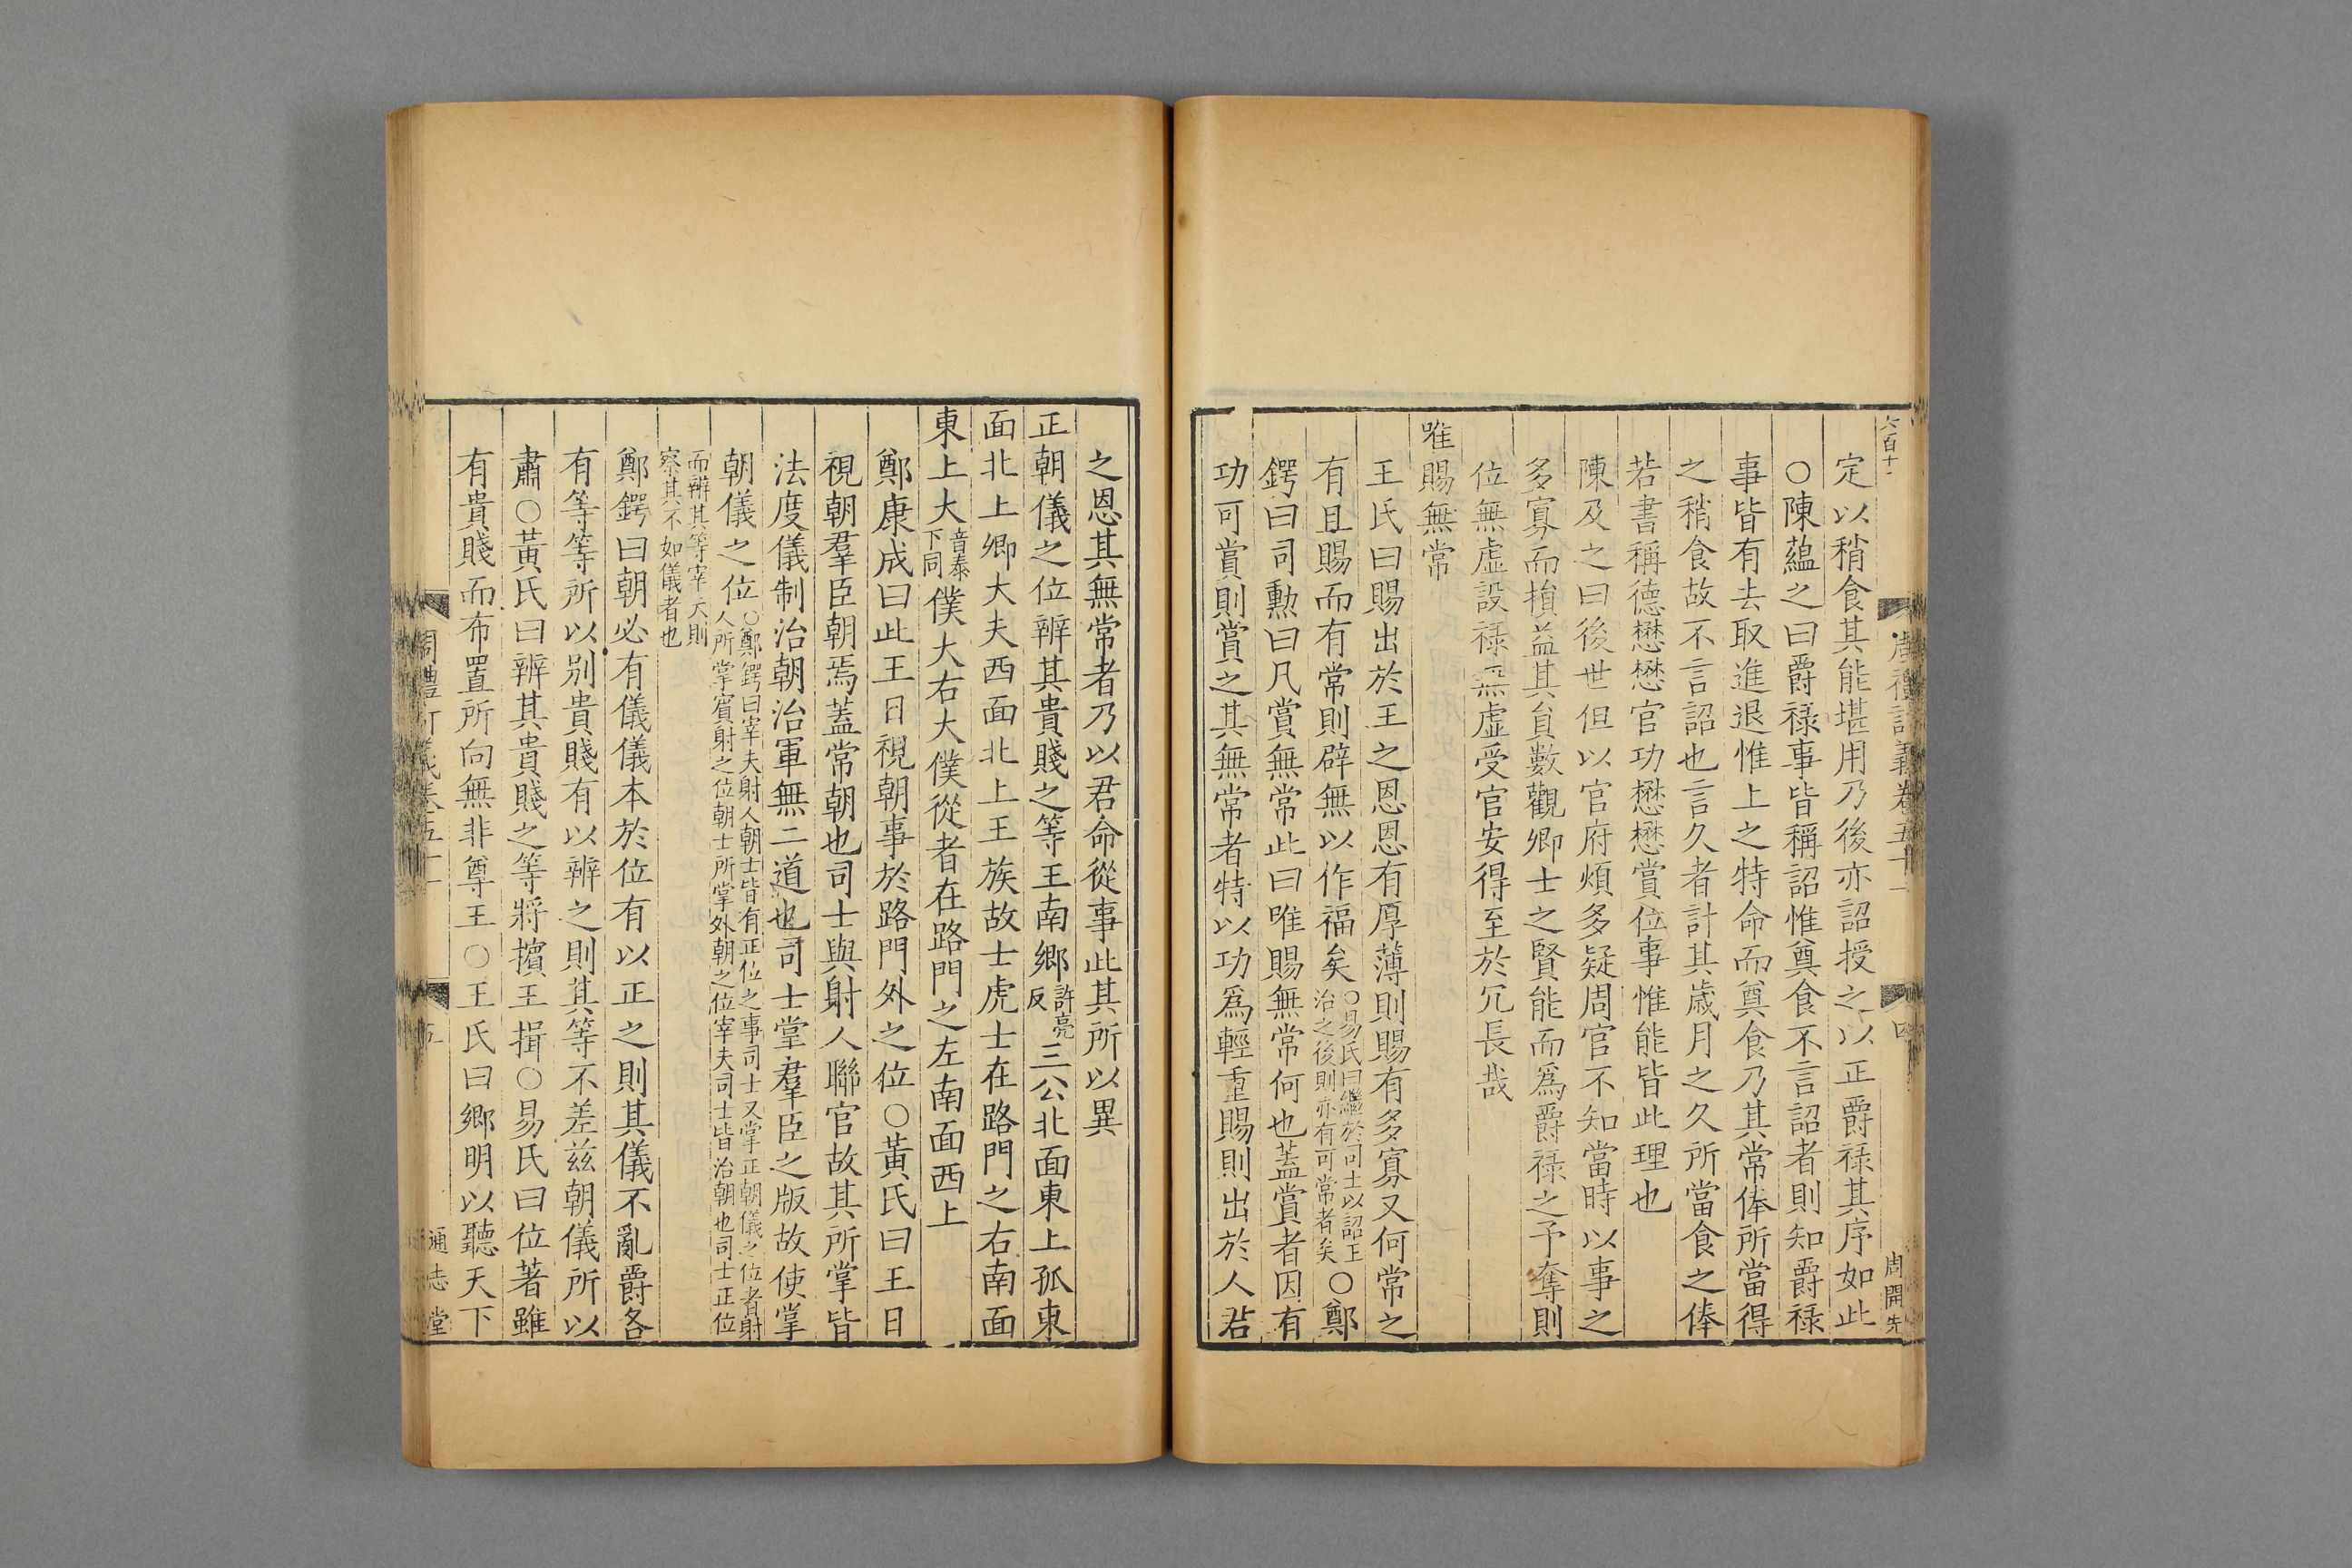 六百十
周禮訂義卷五十一
四
周開先
定以稍食其能堪用乃後亦詔授之以正爵祿其序如此
○陳蘊之曰爵祿事皆稱詔惟奠食不言詔者則知爵祿
事皆有去取進退惟上之特命而奠食乃其常俸所當得
之稍食故不言詔也言久者計其歲月之久所當食之俸
若書稱德懋懋官功懋懋賞位事惟能皆此理也
陳及之曰後世但以官府煩多疑周官不知當時以事之
多寡而損益其員數觀卿士之賢能而爲爵祿之予奪則
位無虛設祿無虛受官安得至於冗長哉
唯賜無常
王氏曰賜出於王之恩恩有厚薄則賜有多寡又何常之
有且賜而有常則辟無以作福矣○易氏曰繼於司士以詔王治之後則亦有可常者矣○鄭
鍔曰司勲曰凡賞無常此曰唯賜無常何也蓋賞者因有
功可賞則賞之其無常者特以功爲輕重賜則出於人君
之恩其無常者乃以君命從事此其所以異
正朝儀之位辨其貴賤之等王南鄉許亮反三公北面東上孤東
面北上卿大夫西面北上王族故士虎士在路門之右南面
東上大音泰下同僕大右大僕從者在路門之左南面西上
鄭康成曰此王日視朝事於路門外之位○黃氏曰王日
視朝羣臣朝焉蓋常朝也司士與射人聯官故其所掌皆
法度儀制治朝治軍無二道也司士掌羣臣之版故使掌
朝儀之位○鄭鍔曰宰夫射人朝士皆有正位之事司士又掌正朝儀之位者射人所掌賓射之位朝士所掌外朝之位宰夫司士皆治朝也司士正位
而辨其等宰夫則察其不如儀者也
鄭鍔曰朝必有儀儀本於位有以正之則其儀不亂爵各
有等等所以别貴賤有以辨之則其等不差兹朝儀所以
肅○黃氏曰辨其貴賤之等將擯王揖○易氏曰位著雖
有貴賤而布置所向無非尊王○王氏曰鄉明以聽天下
周禮訂義卷五十一
五
通志堂